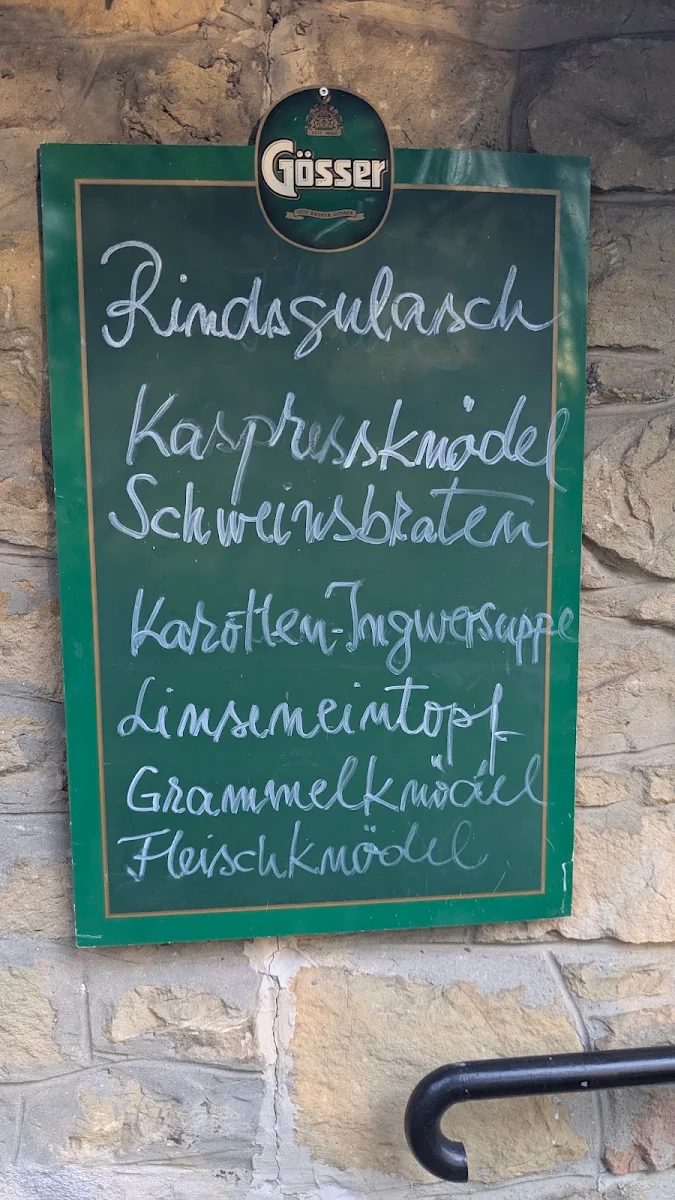 SEIT 1860
Gösser
GUT BESSER GÖSSER
Rindsgulasch
Kaspressknödel
Schweinsbraten
Karotten-Ingwersuppe
Linseneintopf
Grammelknödel
Fleischknödel